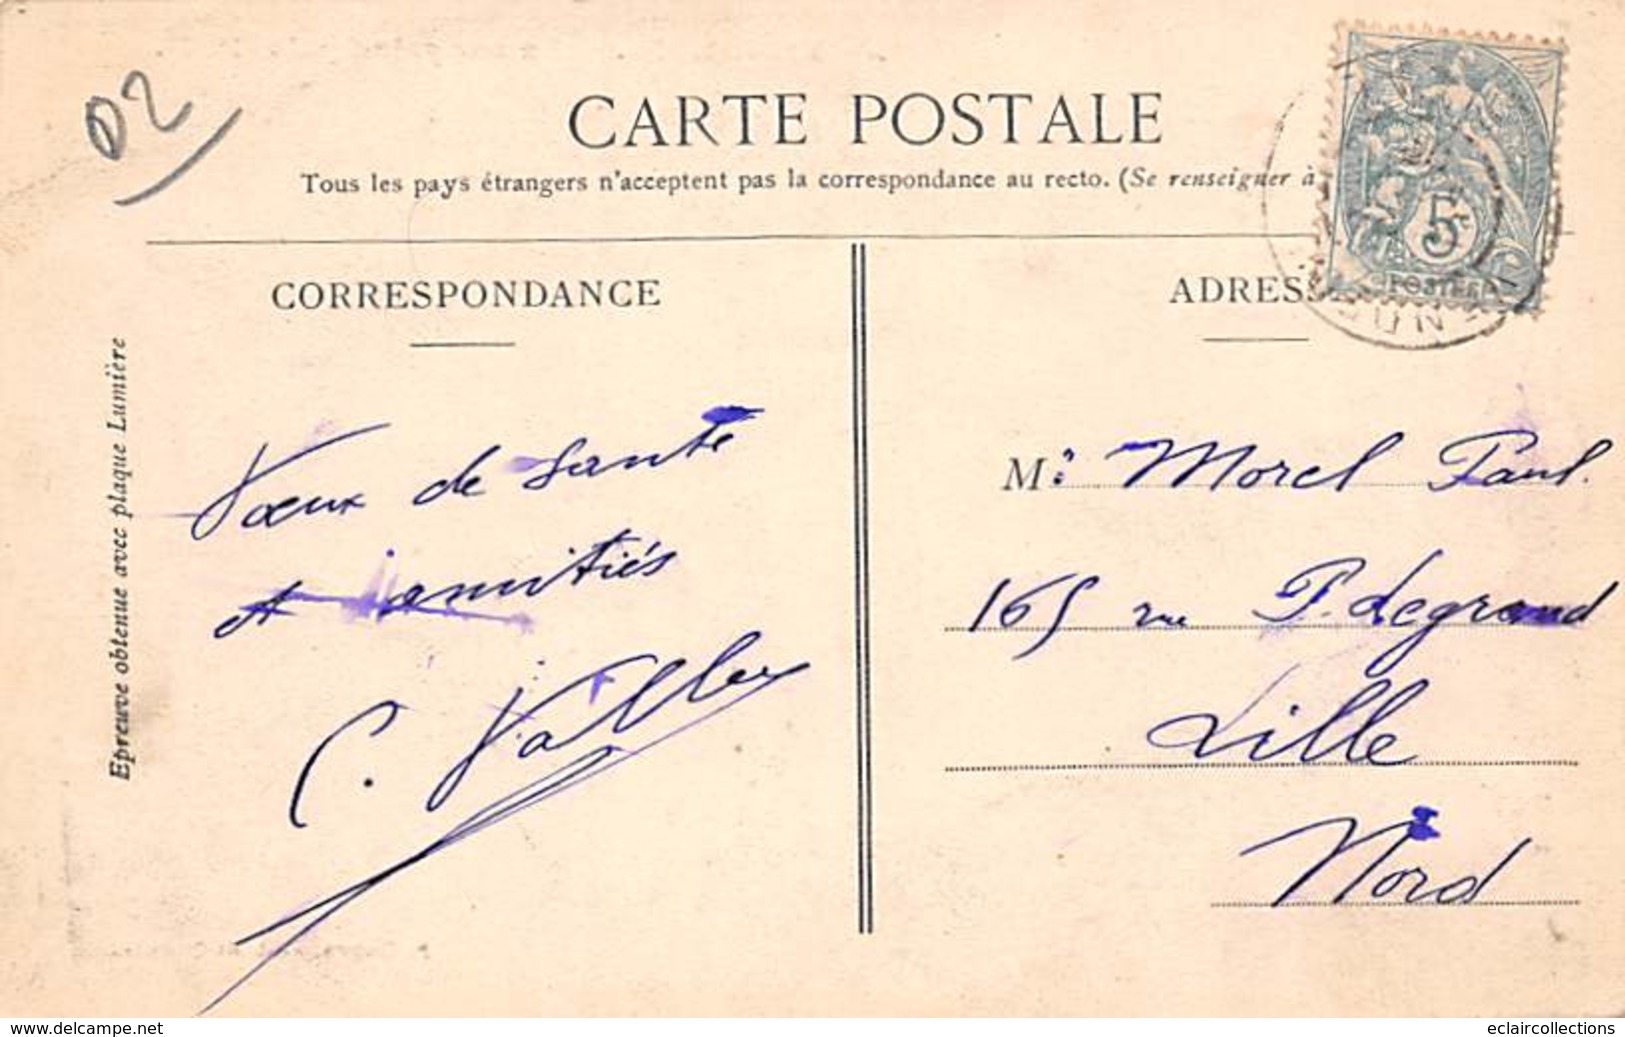 D2
CARTE POSTALE
Tous les pays étrangers n'acceptent pas la correspondance au recto. (Se renseigner à
5c
POSTES
CORRESPONDANCE
ADRES
Epreuve obtenue avec plaque Lumière
Vœux de santé
et amitiés
C.
Mr Morel Paul.
165 rue P. Legrand
Lille
Nord
www.delcampe.net
eclaircollections